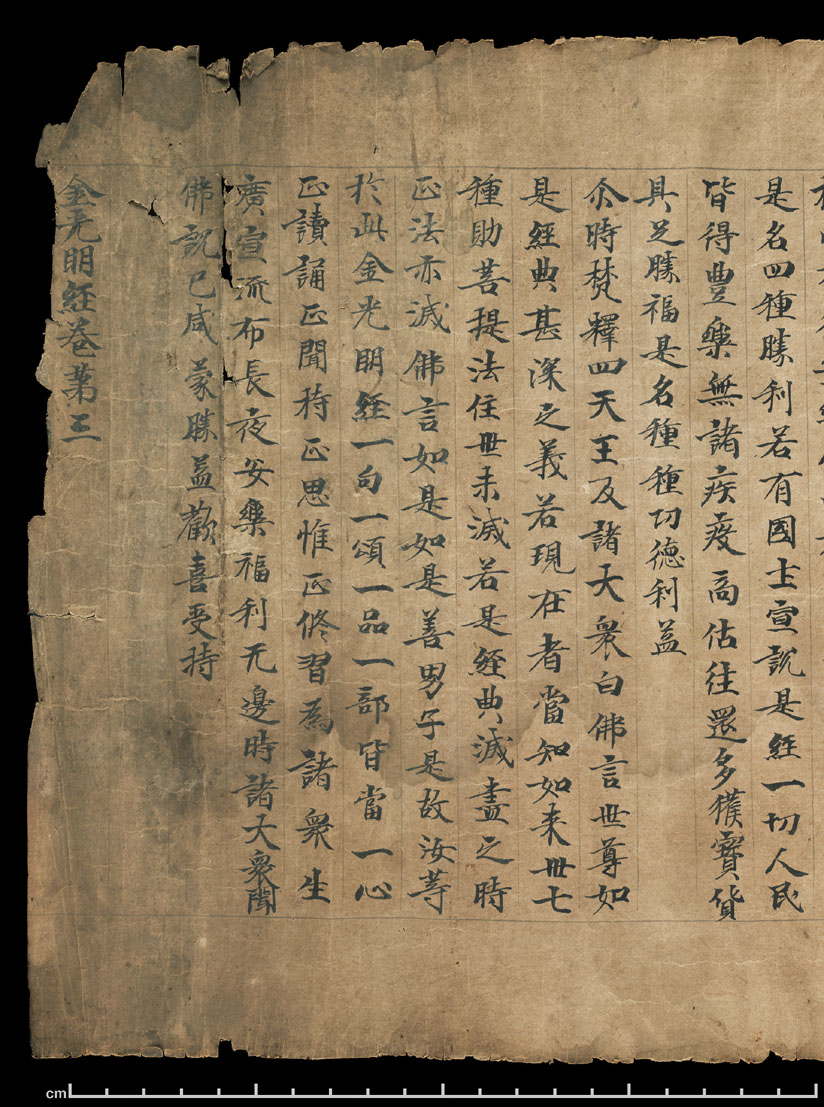 是名四種勝利若有國土宣說是經一切人民
皆得豊樂無諸疾疫商估往還多獲寶貨
具足勝福是名種種功德利益
尒時梵釋四天王及諸大衆白佛言世尊如
是經典甚深之義若現在者當知如来卅七
種助菩提法住世未滅若是經典滅盡之時
正法亦滅佛言如是如是善男子是故汝等
於此金光明經一句一頌一品一部皆當一心
正讀誦正聞持正思惟正修習為諸衆生
廣宣流布長夜安樂福利无邊時諸大衆聞
佛說已咸蒙勝益歡喜受持
金光明經卷第三
cm